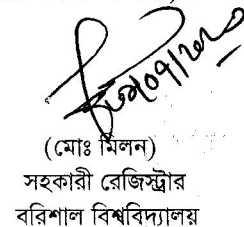 (মোঃ মিলন)
সহকারী রেজিস্ট্রার
বরিশাল বিশ্ববিদ্যালয়